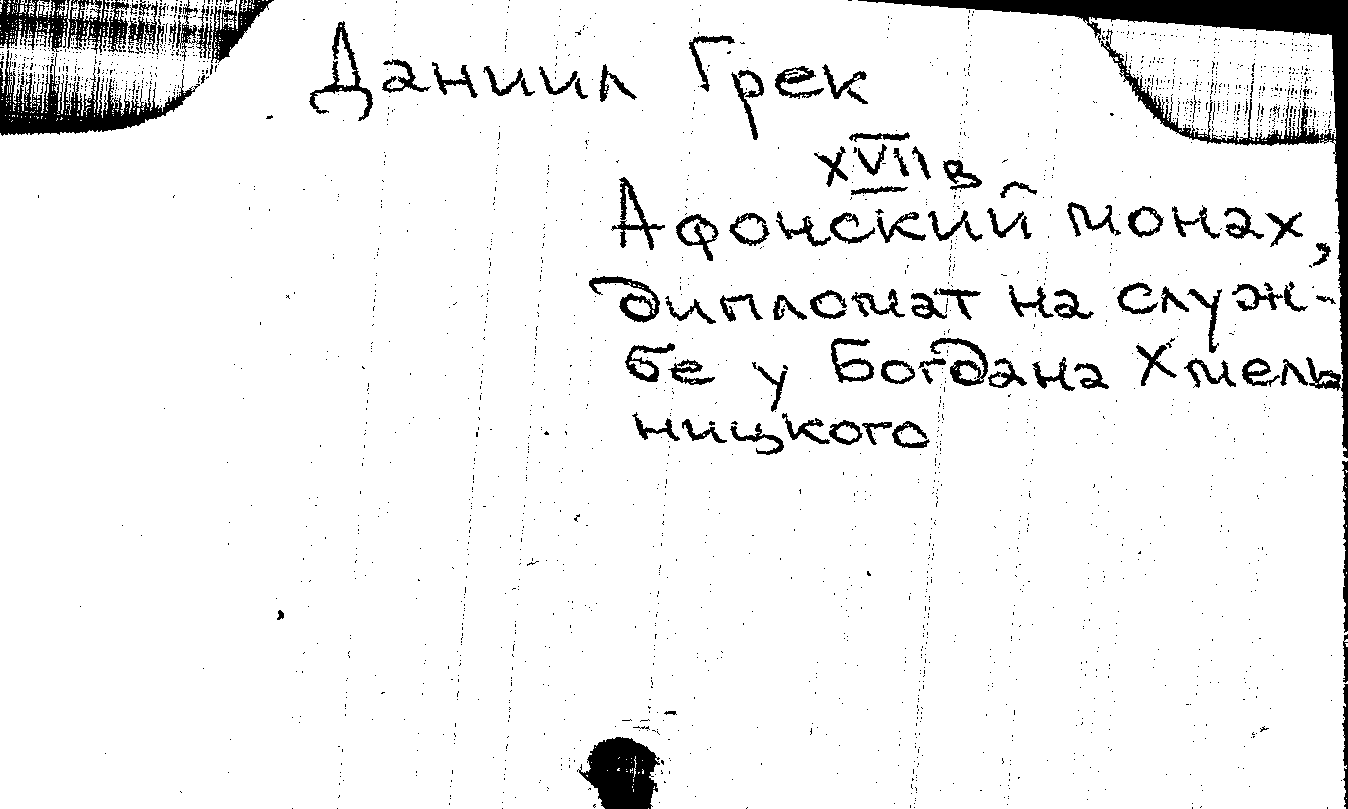 Даниил Грек
XVII в
Афонский монах,
дипломат на служ-
бе у Богдана Хмель
ницкого